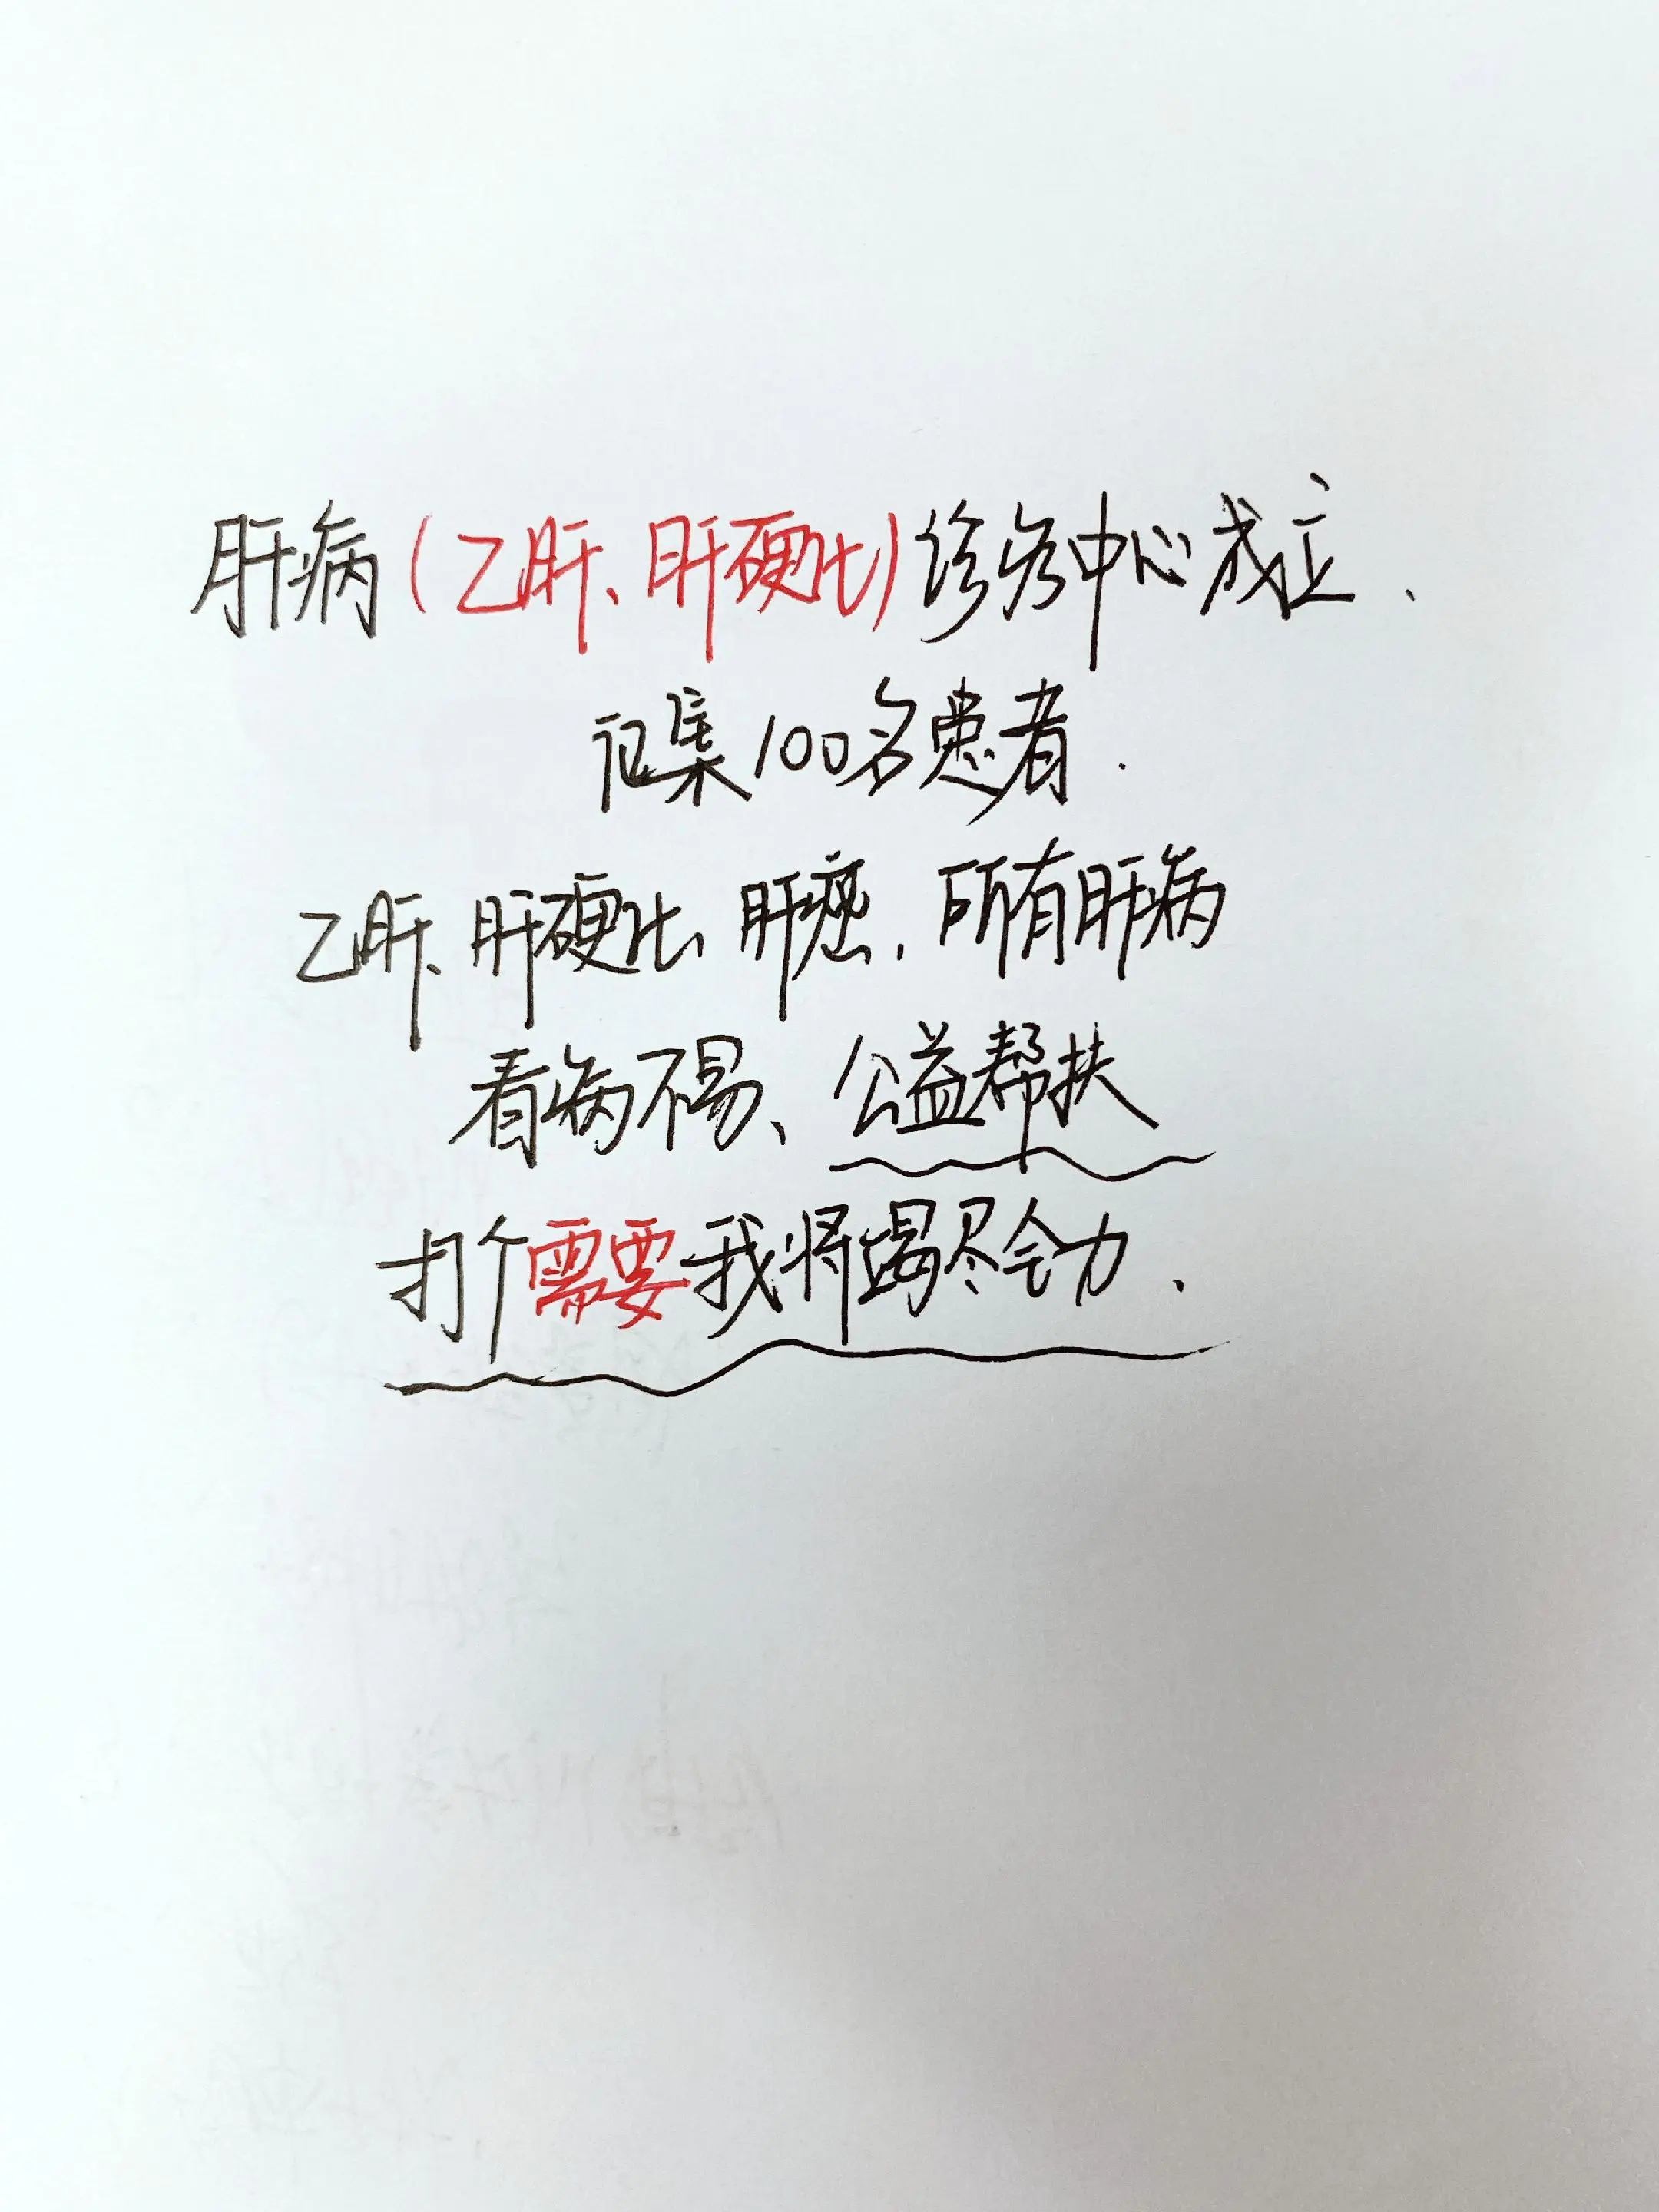 肝病(乙肝、肝硬化)诊疗中心成立、
征集100名患者.
乙肝、肝硬化、肝癌,所有肝病
看病不易、公益帮扶
打个需要我将竭尽全力、